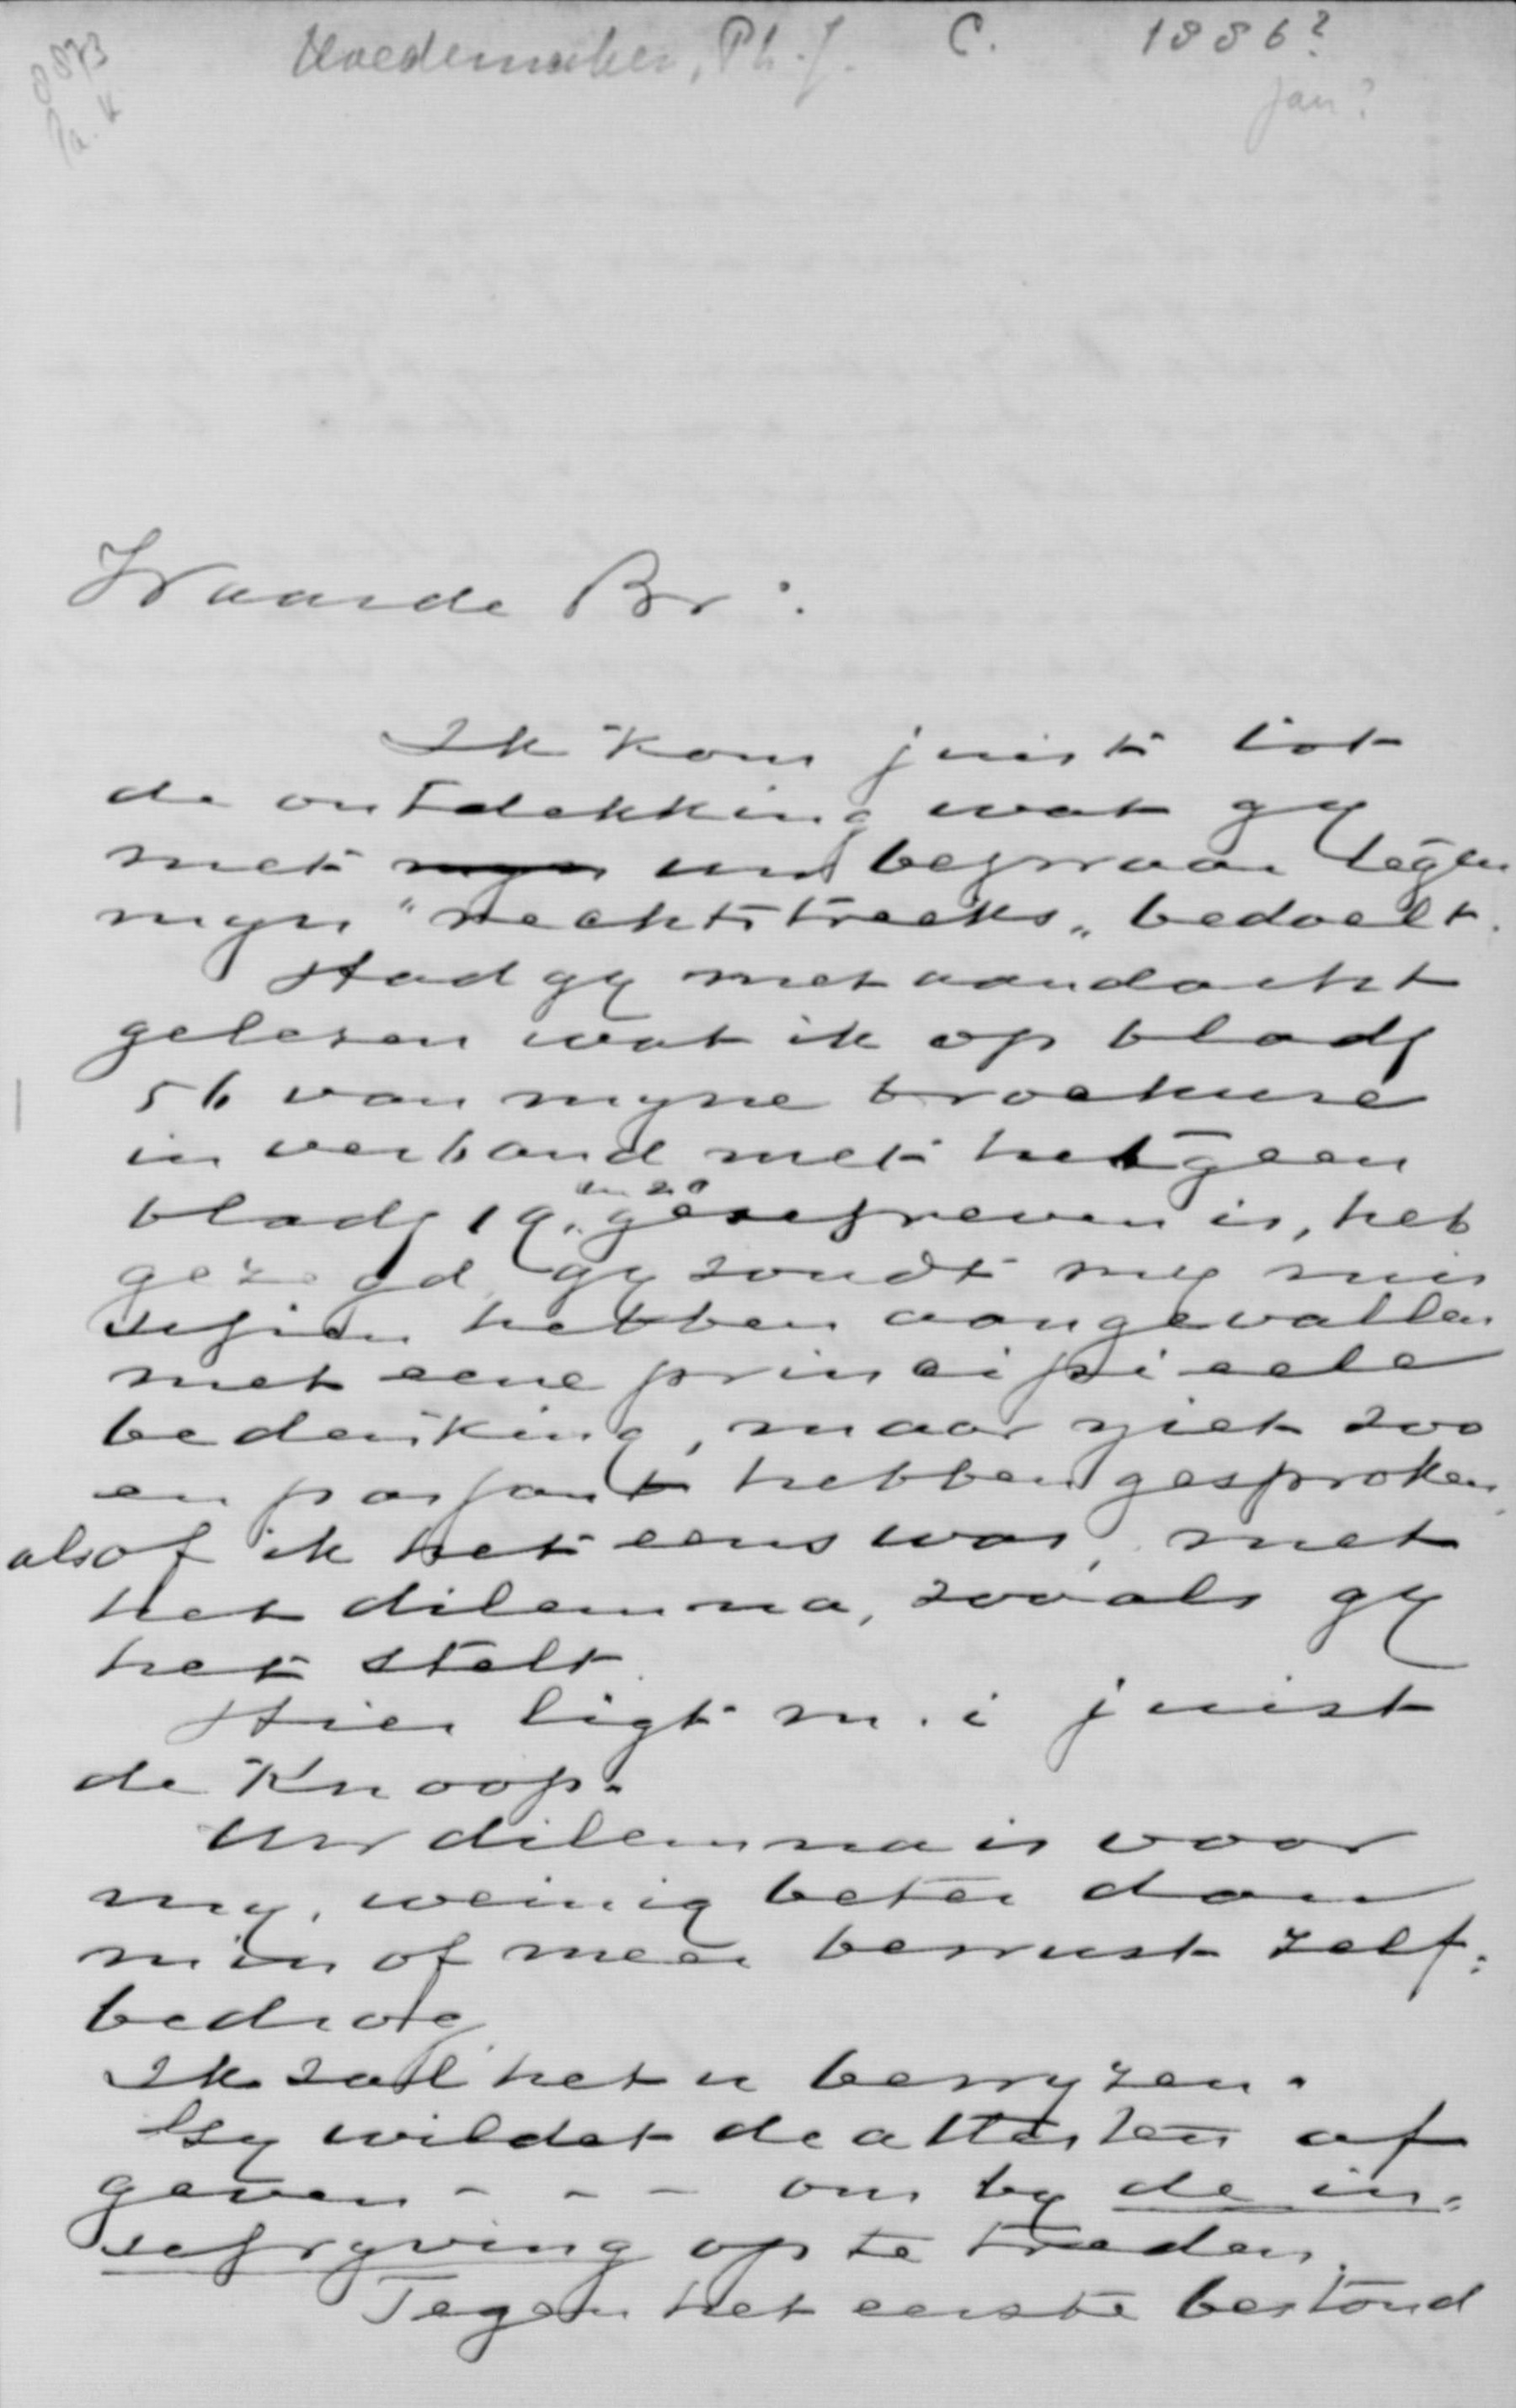 Hoedemaker, Ph. J. C. 1886?
Jan?
Waarde Br:
Ik kom juist tot
de ontdekking wat gy
met uw bezwaar tegen
myn "rechtstreeks" bedoelt.
Had gy met aandacht
gelezen wat ik op bladz
56 van myne brochure
in verband met hetgeen
bladz 19. en 20 geschreven is, heb
gezegd, gy zoudt my mis
schien hebben aangevallen
met eene principieele
bedenking, maar niet zoo
en passant hebben gesproken,
alsof ik het eens was, met
het dilemma, zooals gy
het stelt.
Hier ligt m. i juist
de Knoop.
Uw dilemma is voor
my, weinig beter dan
min of meer bewust zelf:
bedrog.
Ik zal het u bewyzen.
Gy wildet de attesten af
geven - - - om by de in:
schryving op te treden.
Tegen het eerste bestond